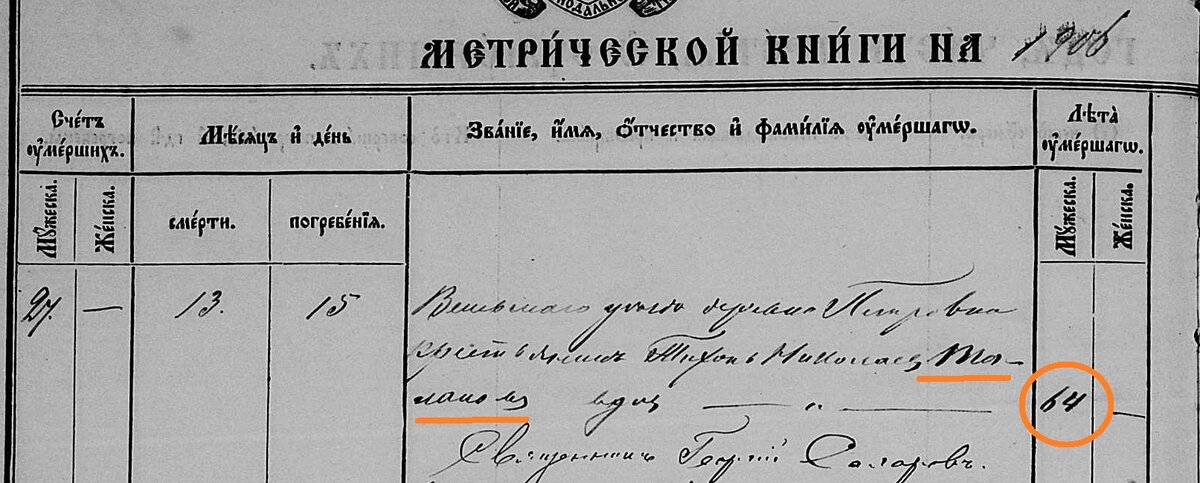 МЕТРИ́ЧЕСКОЙ КНИ́ГИ НА 1906
Сче́тъ ᲂу҆ме́ршихъ.
Мѣ́сяцъ и҆ де́нь
Зва́нїе, и҆́мя, ѻ҆́тчество и҆ фами́лїя ᲂу҆ме́ршагѡ.
Лѣ́та ᲂу҆ме́ршагѡ.
Мꙋ́жеска.
Же́нска.
сме́рти.
погребе́нїя.
Мꙋ́жеска.
Же́нска.
27. — 13. 15 Вельскаго уѣзда деревни Петровка
крестьянинъ Тихонъ Николаевъ
вдов — „ — 64 —
Священникъ Георгій